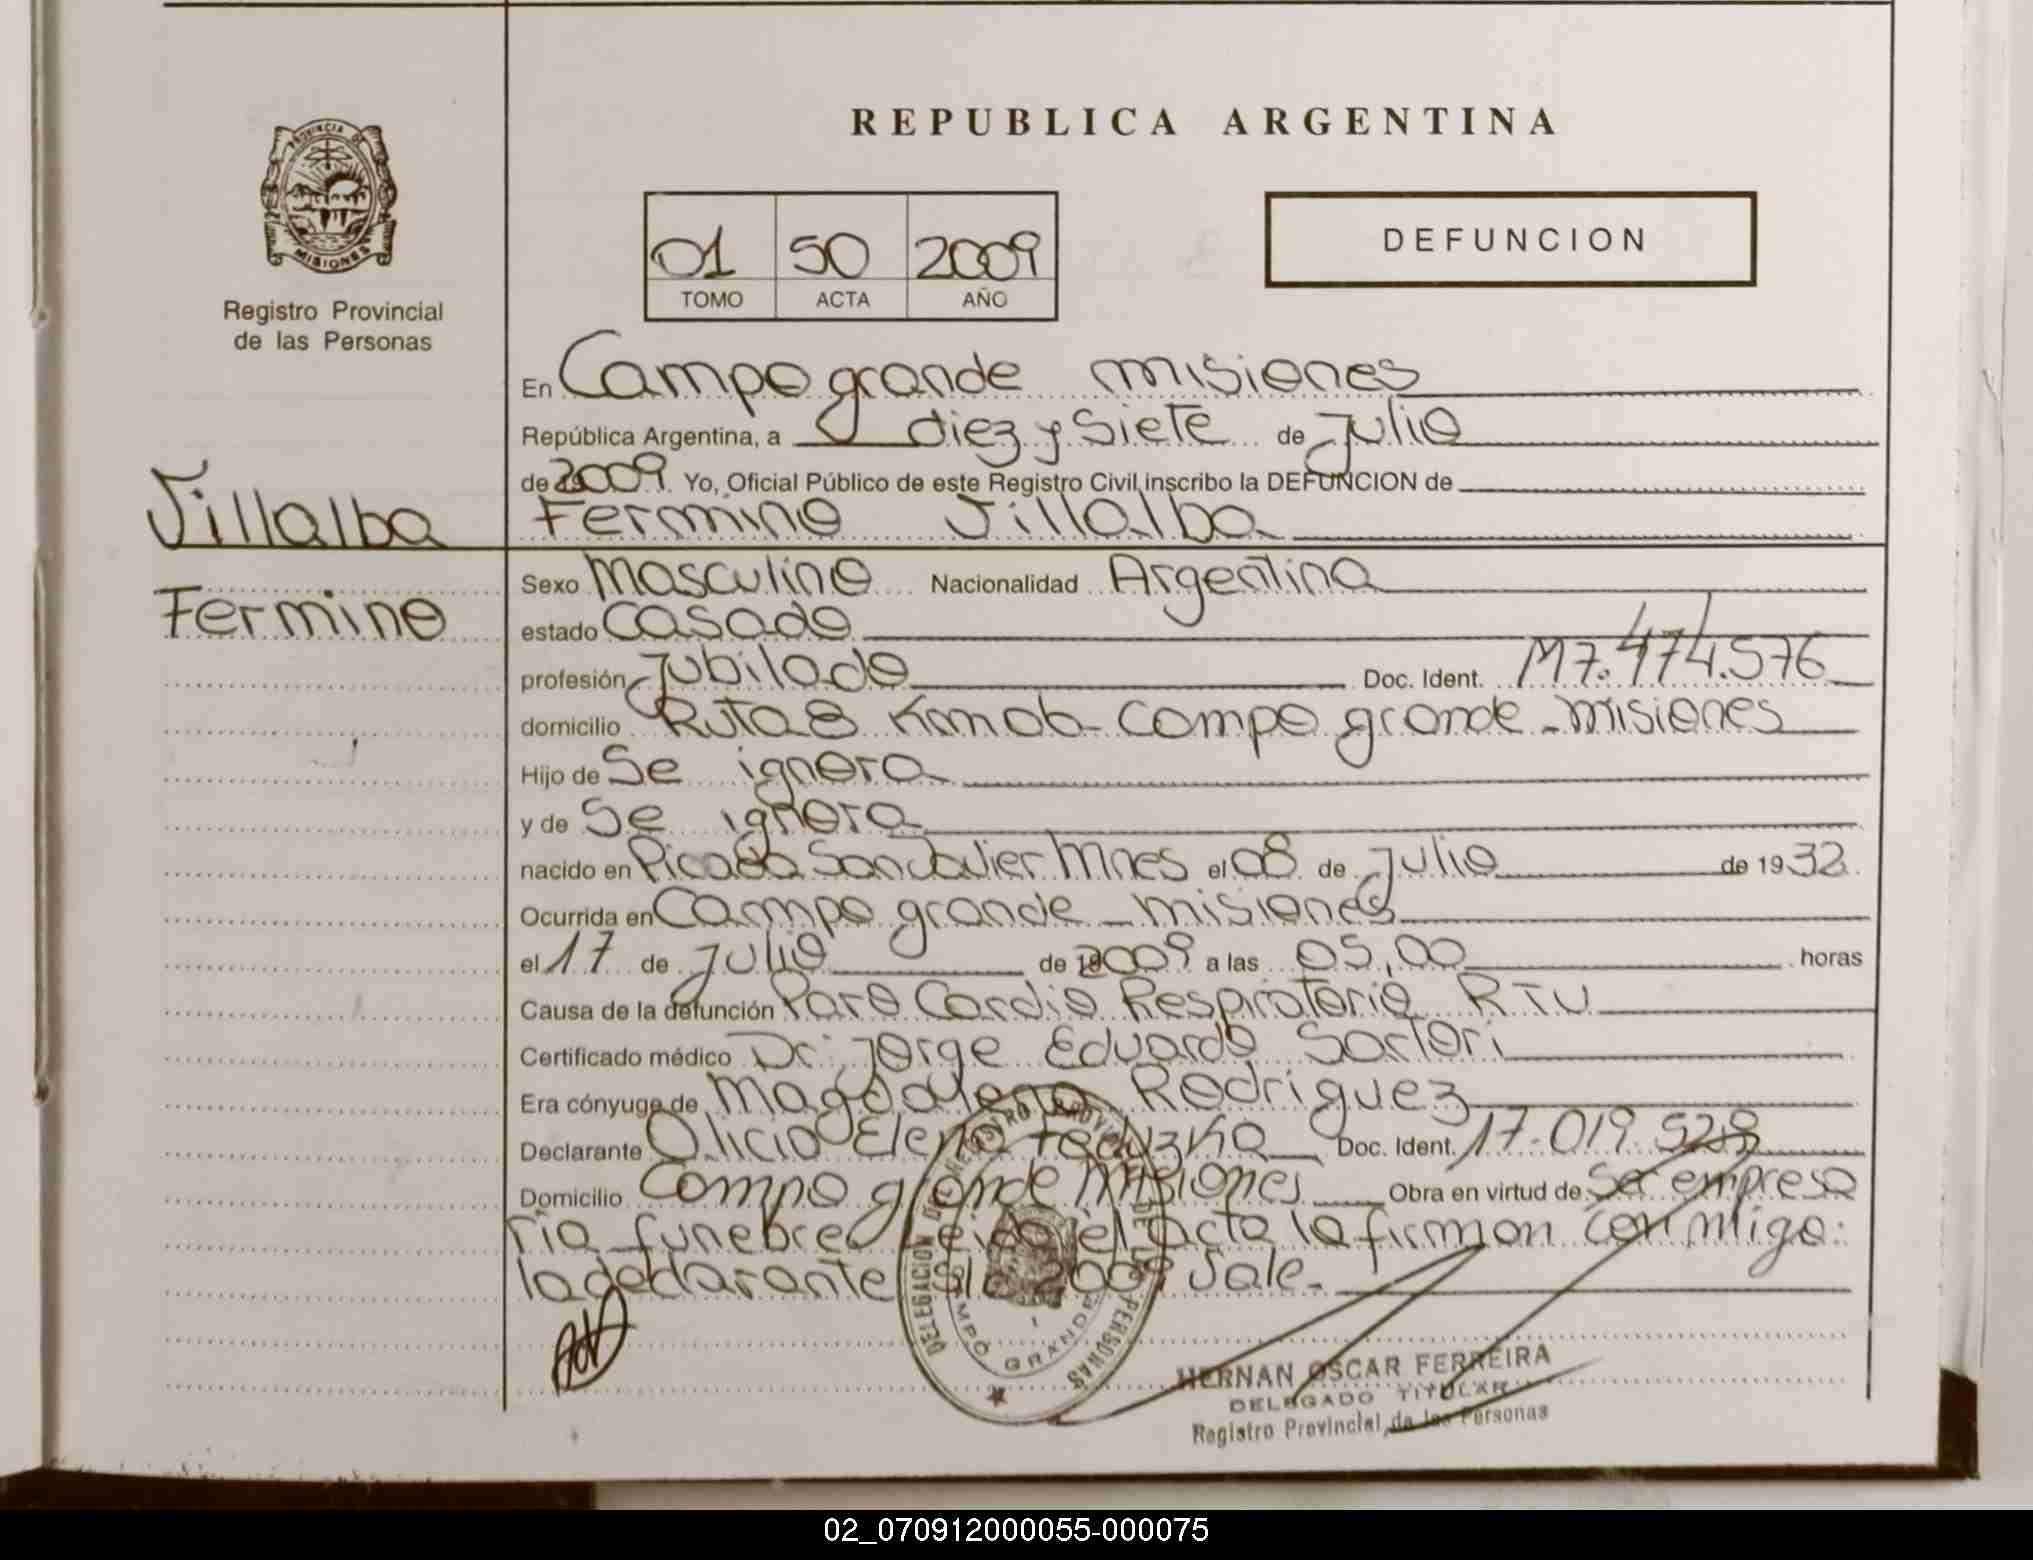 REPUBLICA ARGENTINA
PROVINCIA DE
MISIONES
Registro Provincial
de las Personas
01 50 2009
TOMO ACTA AÑO
DEFUNCION
En Campo grande misiones
República Argentina, a diez y Siete de Julio
de 2009. Yo, Oficial Público de este Registro Civil inscribo la DEFUNCION de
Villalba
Fermino Villalba
Fermino
Sexo masculino Nacionalidad Argentina
estado casado
profesión Jubilado Doc. Ident. M7.474.576
domicilio Ruta 8 Campo grande - misiones
Hijo de Se ignora
y de Se ignora
nacido en Picada San Javier Mnes el 08 de Julio de 1932
Ocurrida en Campo grande - misiones
el 17 de Julio de 2009 a las 05,00 horas
Causa de la defunción Paro Cardio Respiratorio
Certificado médico Dr: Jorge Eduardo Sartori
Era cónyuge de Magdalena Rodriguez
Declarante Olicia Elena Doc. Ident. 17.019.528
Domicilio Campo grande Misiones Obra en virtud de Ser empresa
ria funebre leida el acta la firman conmigo:
la declarante S/b 2009 Vale.
DELEGACION DEL REGISTRO PROVINCIAL DE LAS PERSONAS
CAMPO GRANDE
HERNAN OSCAR FERREIRA
DELEGADO TITULAR
Registro Provincial de las Personas
02_070912000055-000075